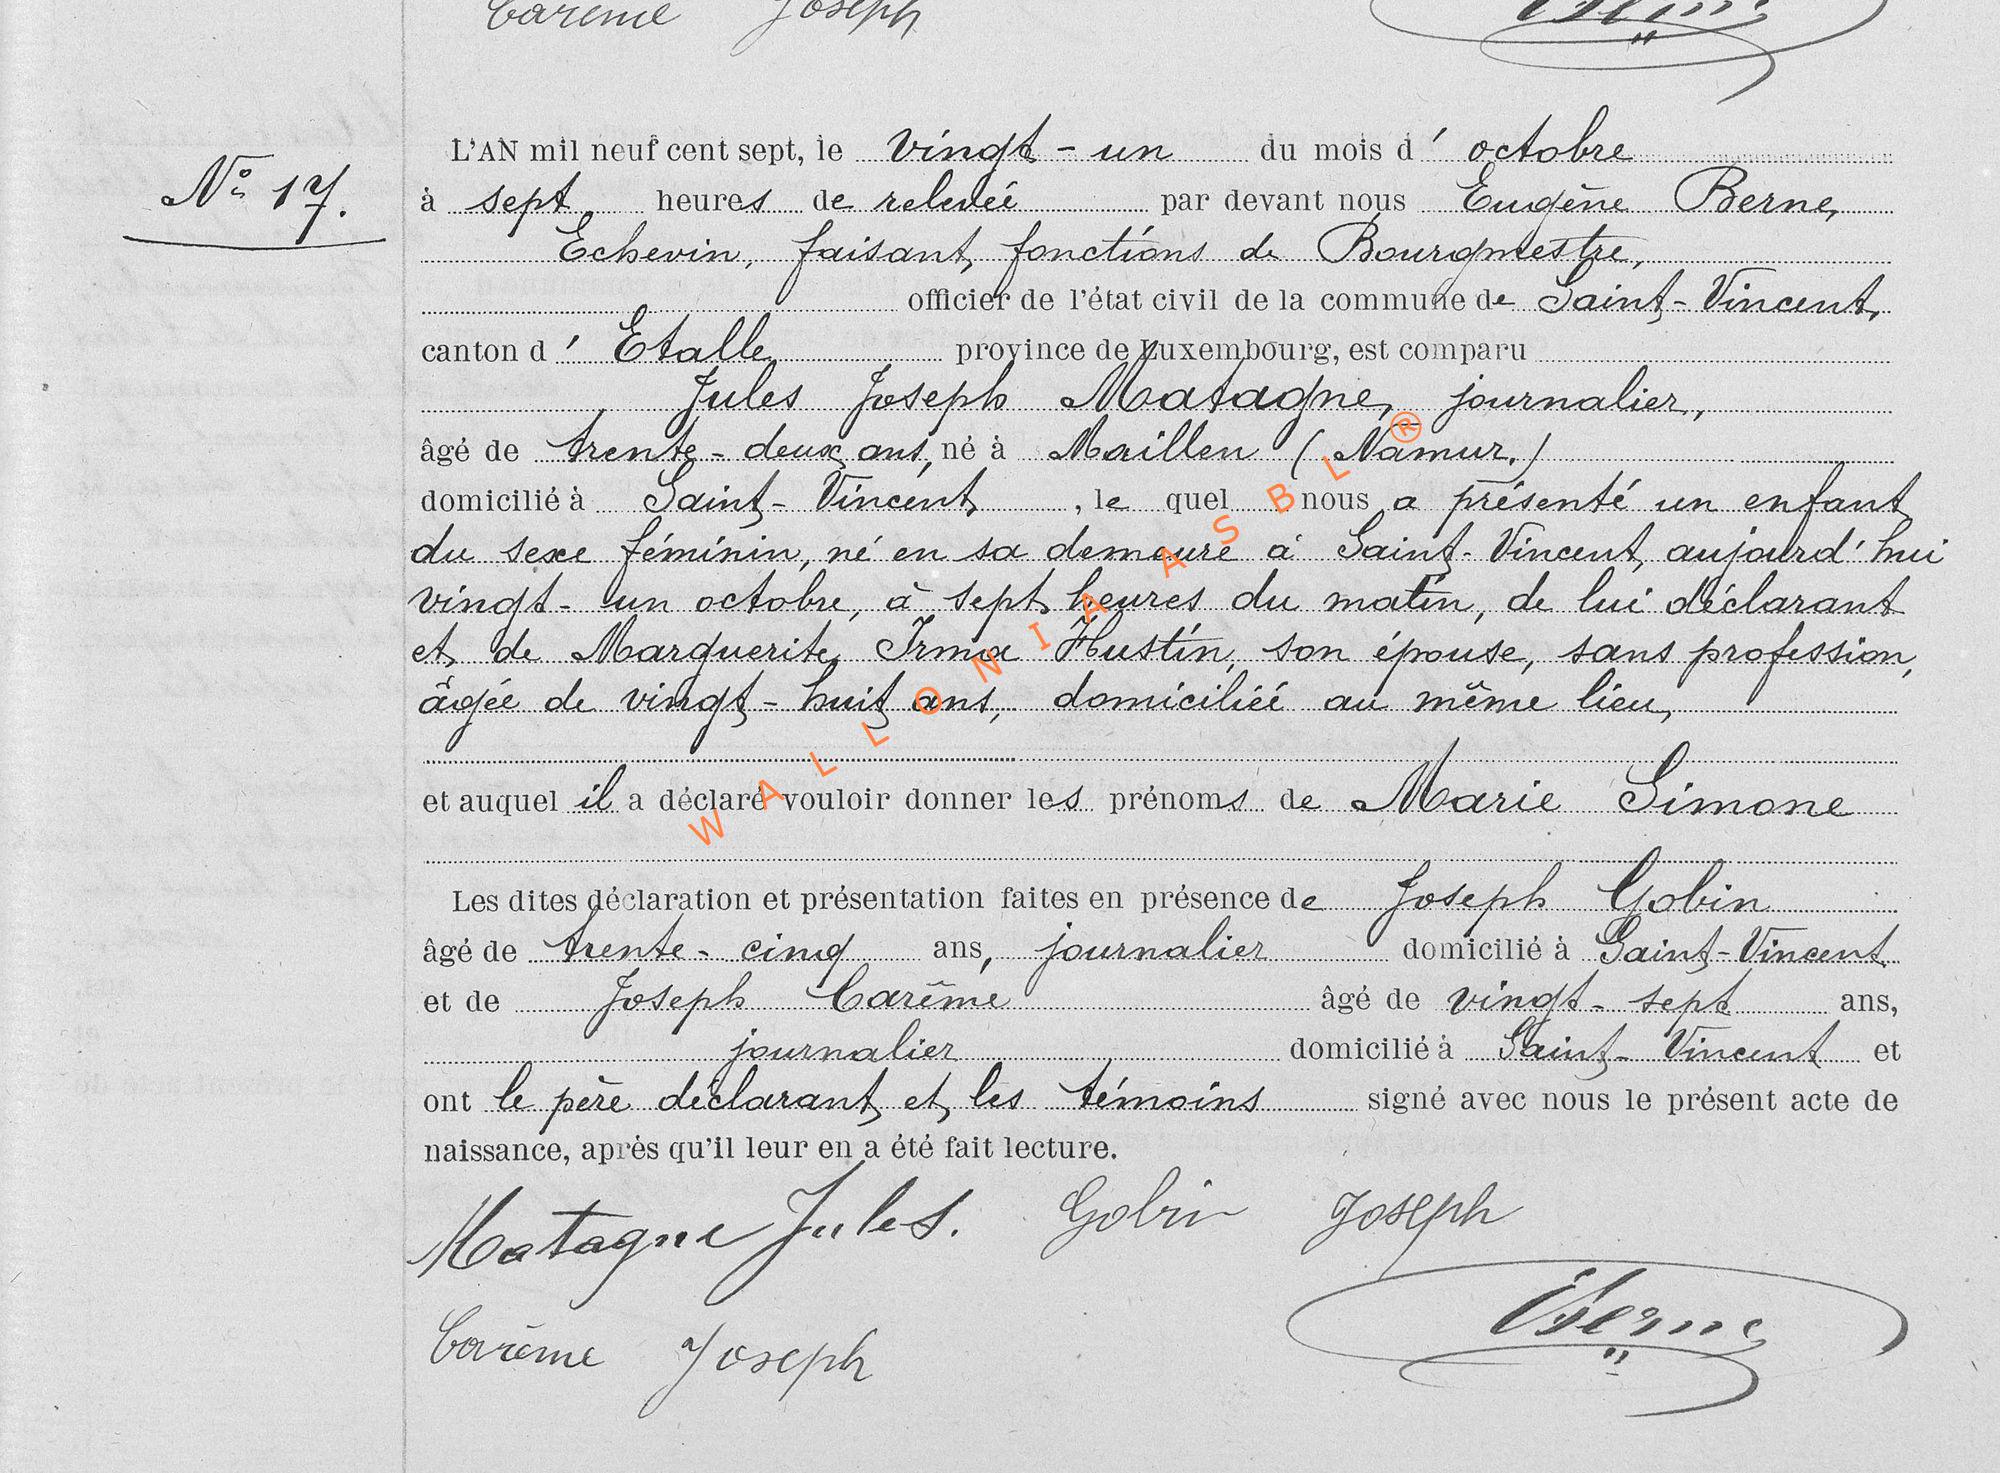 Carême Joseph
Berne
L'AN mil neuf cent sept, le vingt-un du mois d'octobre
N° 17.
à sept heures de relevée par devant nous Eugène Berne,
Echevin, faisant fonctions de Bourgmestre,
officier de l'état civil de la commune de Saint-Vincent,
canton d'Etalle, province de Luxembourg, est comparu
Jules Joseph Matagne, journalier,
âgé de trente-deux ans, né à Maillen (Namur.)
domicilié à Saint-Vincent, le quel nous a présenté un enfant
du sexe féminin, né en sa demeure à Saint-Vincent, aujourd'hui
vingt-un octobre, à sept heures du matin, de lui déclarant
et de Marguerite Irma Hustin, son épouse, sans profession,
âgée de vingt-huit ans, domiciliée au même lieu,
et auquel il a déclaré vouloir donner les prénoms de Marie Simone
Les dites déclaration et présentation faites en présence de Joseph Gobin
âgé de trente-cinq ans, journalier domicilié à Saint-Vincent
et de Joseph Carême âgé de vingt-sept ans,
journalier domicilié à Saint-Vincent et
ont le père déclarant et les témoins signé avec nous le présent acte de
naissance, après qu'il leur en a été fait lecture.
Matagne Jules. Gobin Joseph
Carême Joseph
EBerne
WALLONIA ASBL ®